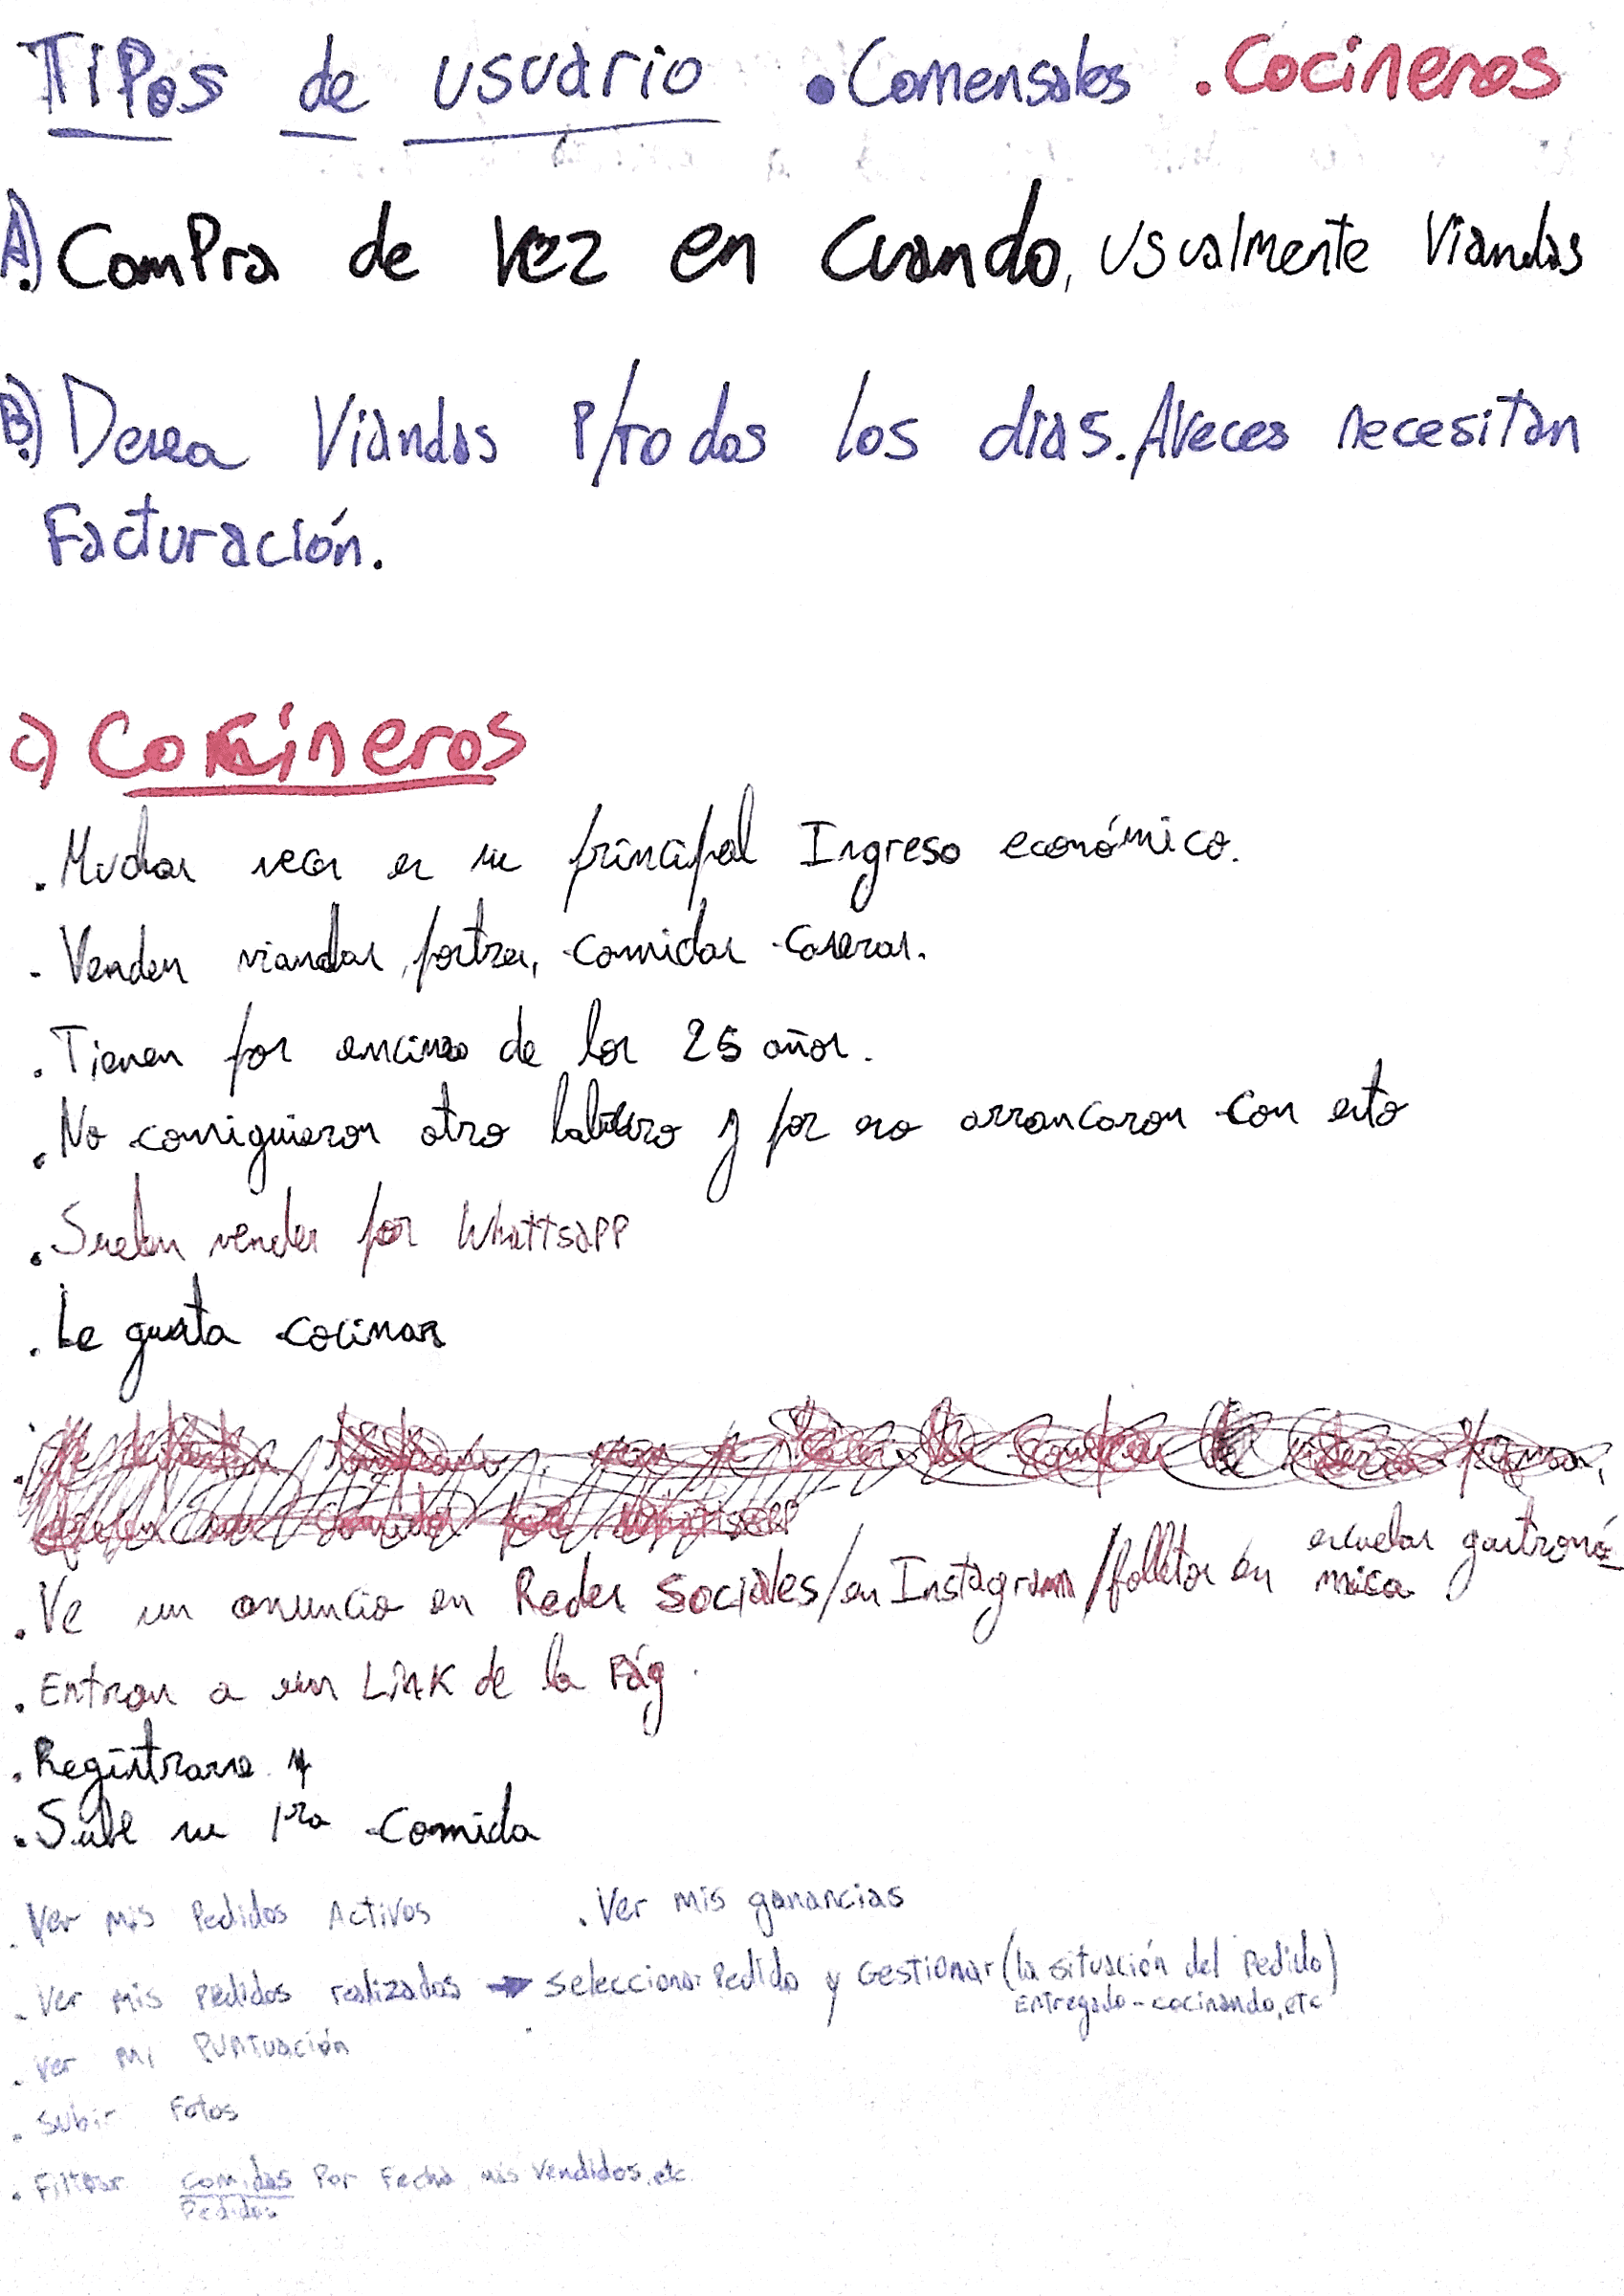 Tipos de usuario • Comensales • Cocineros
A) Compra de vez en cuando, usualmente viandas
B) Desea viandas p/todos los dias. Aveces necesitan
Facturación.
c) Cocineros
. Muchas veces es su principal Ingreso económico.
- Venden viandas, postres, comidas caseras.
. Tienen por encima de los 25 años.
. No consiguieron otro laburo y por eso arrancaron con esto
. Suelen vender por Whattsapp
. Le gusta cocinar
. Ve un anuncio en Redes Sociales/en Instagram/folletos en escuelas gastronó-
mica
. Entran a un Link de la Pág.
. Registrarse y
. Sube su 1ra comida
. Ver mis Pedidos Activos . Ver mis ganancias
. Ver mis pedidos realizados → seleccionar Pedido y Gestionar (la situación del pedido)
Entregado - cocinando, etc
. Ver mi Puntuación
. Subir Fotos
. Filtrar comidas Por Fecha, más vendidos, etc.
Pedidos